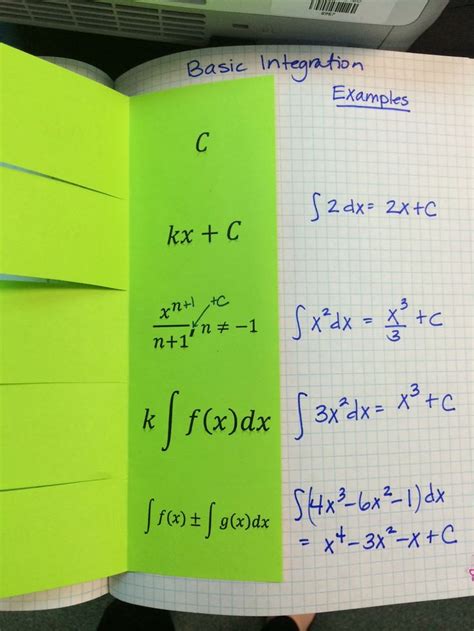 Basic Integration
Examples
C
kx + C
∫2dx = 2x+C
x^{n+1}/n+1, n ≠ −1 +C
∫x²dx = x³/3 + C
k∫f(x)dx
∫3x²dx = x³+C
∫f(x) ± ∫g(x)dx
∫(4x³−6x²−1)dx
= x⁴−3x²−x+C